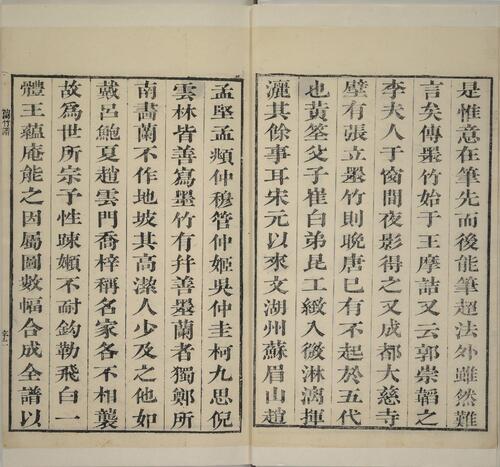 是惟意在筆先而後能筆超法外雖然難
言矣傳墨竹始于王摩詰又云郭崇韜之
李夫人于窗間夜影得之又成都大慈寺
壁有張立墨竹則晚唐已有不起於五代
也黃筌父子崔白弟昆工緻入微淋漓揮
灑其餘事耳宋元以來文湖州蘇眉山趙
孟堅孟頫仲穆管仲姬吳仲圭柯九思倪
雲林皆善寫墨竹有并善墨蘭者獨鄭所
南畵蘭不作地坡其高潔人少及之他如
戴呂鮑夏趙雲門喬梓稱名家各不相襲
故爲世所宗予性疎嬾不耐鈎勒飛白一
體王蘊庵能之因屬圖數幅合成全譜以
蘭竹譜